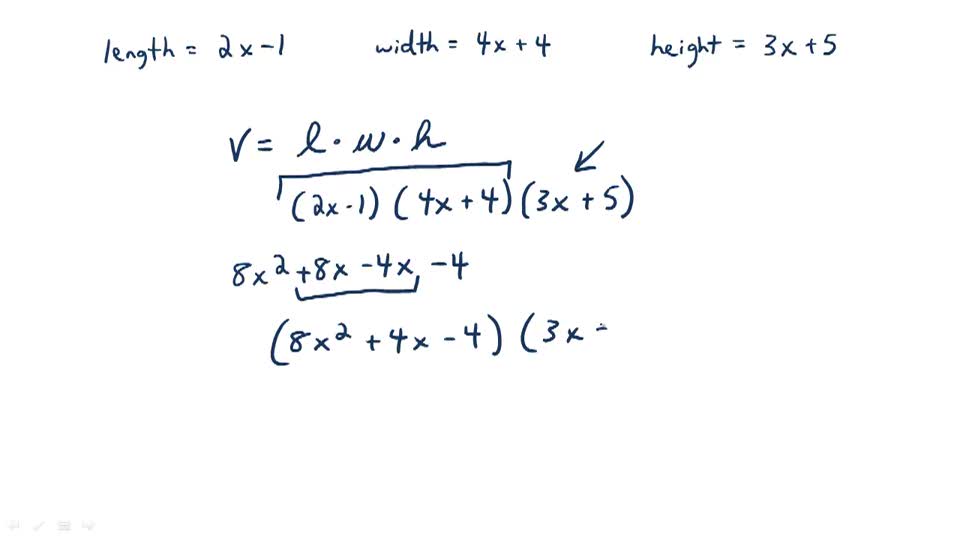 length = 2x - 1 width = 4x + 4 height = 3x + 5
V = l · w · h
(2x - 1) (4x + 4) (3x + 5)
8x² + 8x - 4x - 4
(8x² + 4x - 4) (3x -